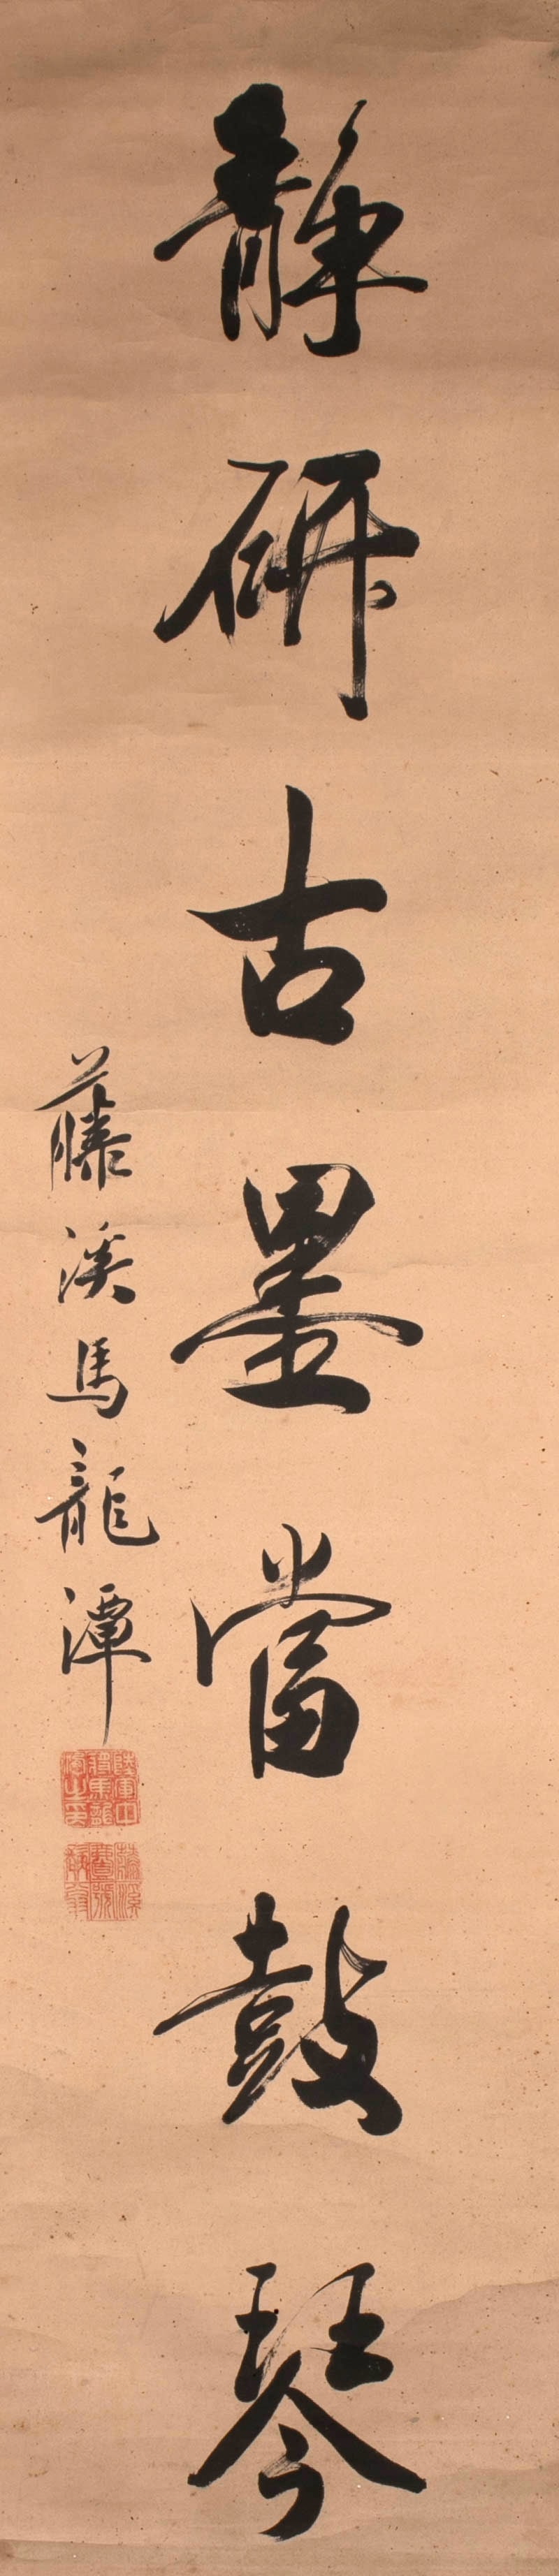 靜研古墨當鼓琴
藤溪馬龍潭